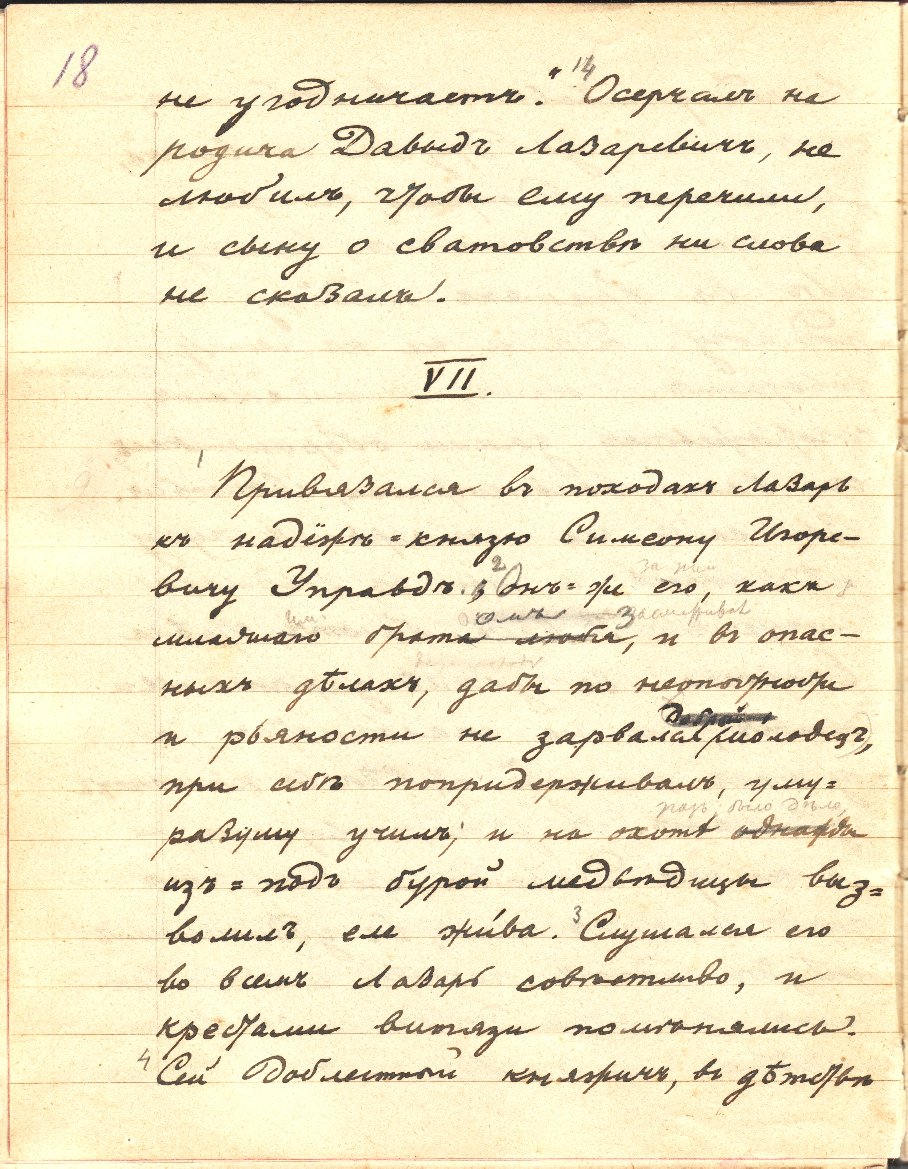 18
не угодничаетъ." 14 Осерчалъ на
родича Давыдъ Лазаревичъ, не
любилъ, чтобы ему перечили,
и сыну о сватовствѣ ни слова
не сказалъ.
VII.
1 Привязался въ походахъ Лазарь
къ надёжѣ=князю Симеону Игоре-
вичу Управдѣ. 2 Онъ=же его, какъ
за
младшаго брата любя, 3 и въ опас-
ныхъ дѣлахъ, дабы по неопытности
Доброй
и рьяности не зарвался молодецъ,
при себѣ попридерживалъ, уму=
разъ, было дѣло,
разуму училъ; и на охотѣ однажды
изъ=подъ бурой медвѣдицы выз=
волилъ, еле жива. 3 Слушался его
во всемъ Лазарь совѣстливо, и
крестами витязи помѣнялись.
4 Сей доблестный княжичъ, въ дѣтствѣ